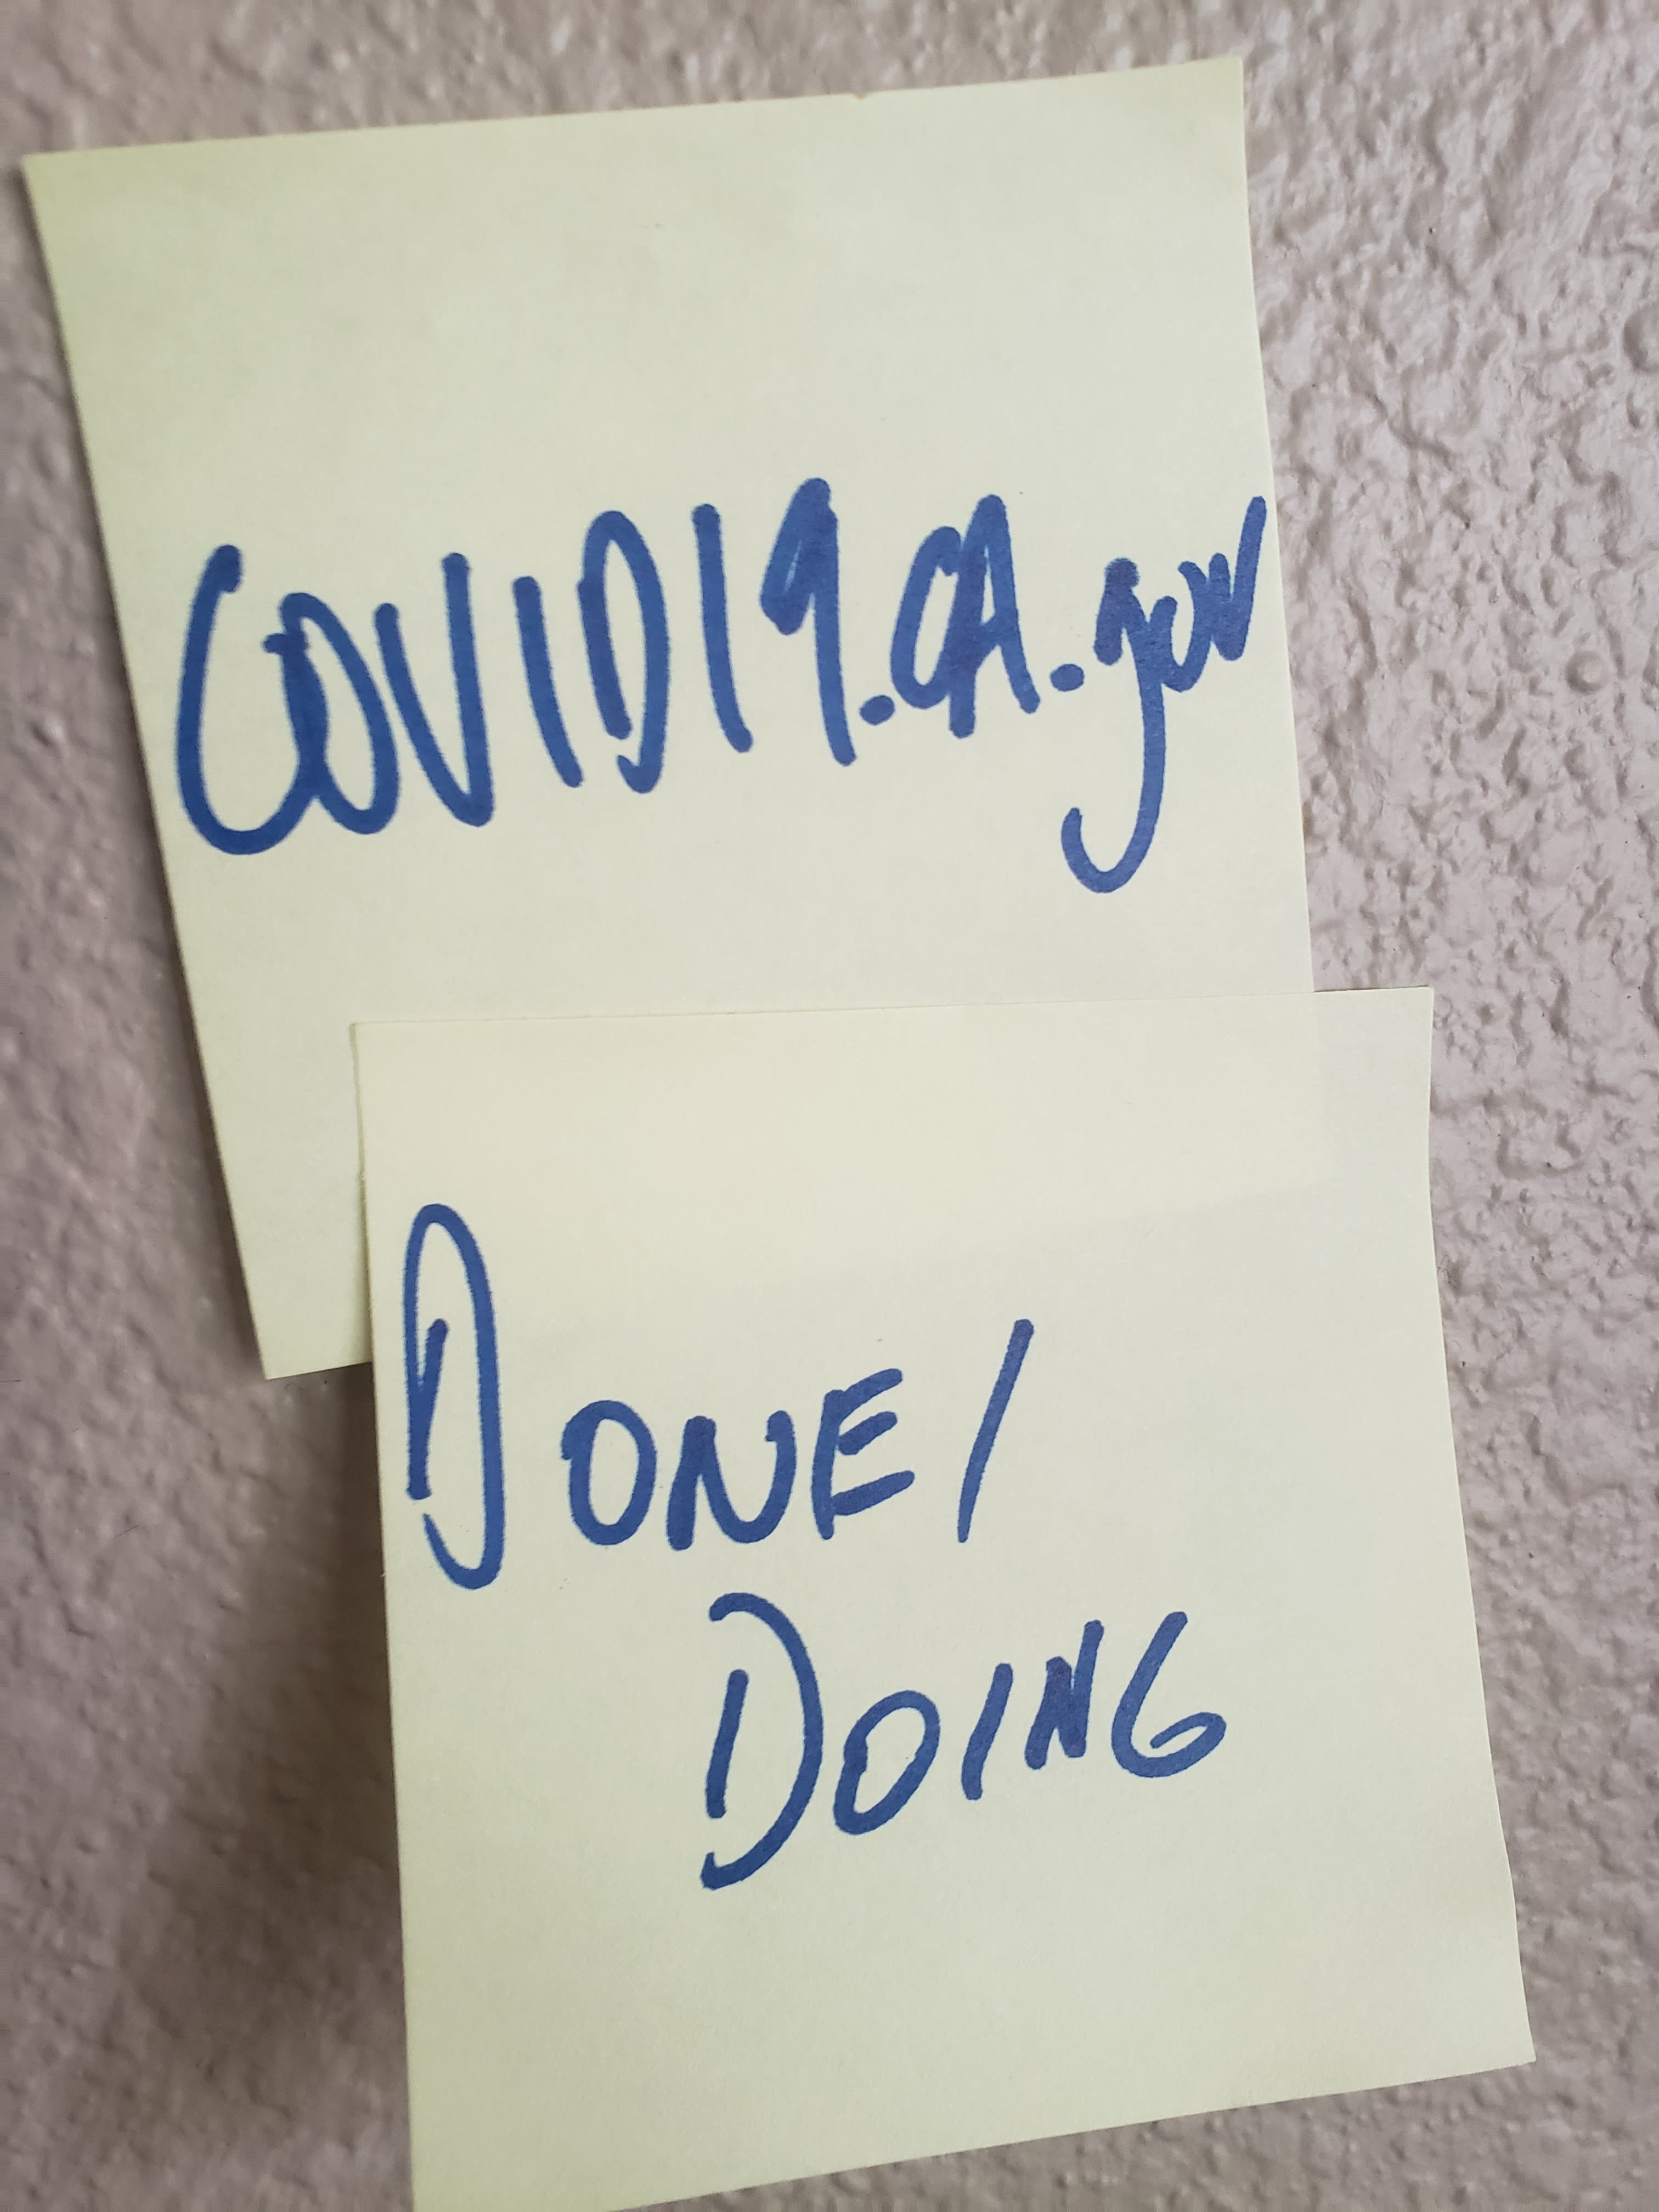 COVID19.CA.gov
DONE/
DOING